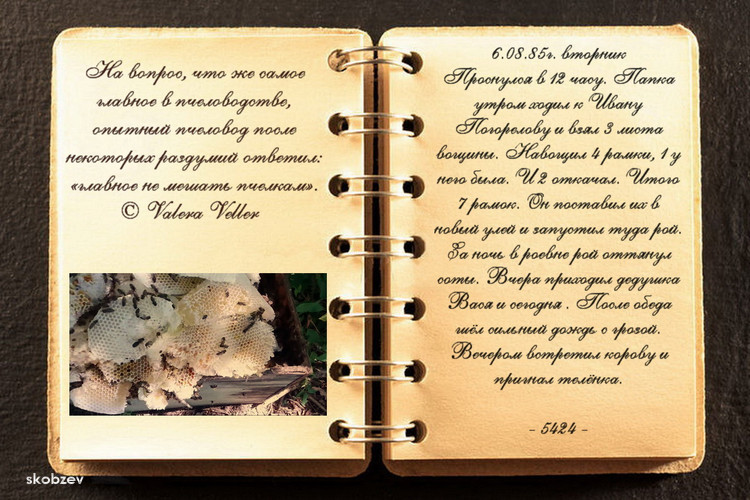 На вопрос, что же самое
главное в пчеловодстве,
опытный пчеловод после
некоторых раздумий ответил:
«главное не мешать пчелкам».
© Valera Veller
6.08.85г. вторник
Проснулся в 12 часу. Папка
утром ходил к Ивану
Погорелову и взял 3 листа
вощины. Навощил 4 рамки, 1 у
него была. И 2 откачал. Итого
7 рамок. Он поставил их в
новый улей и запустил туда рой.
За ночь в роевне рой оттянул
соты. Вчера приходил дедушка
Вася и сегодня . После обеда
шёл сильный дождь с грозой.
Вечером встретил корову и
пригнал телёнка.
- 5424 -
skobzev